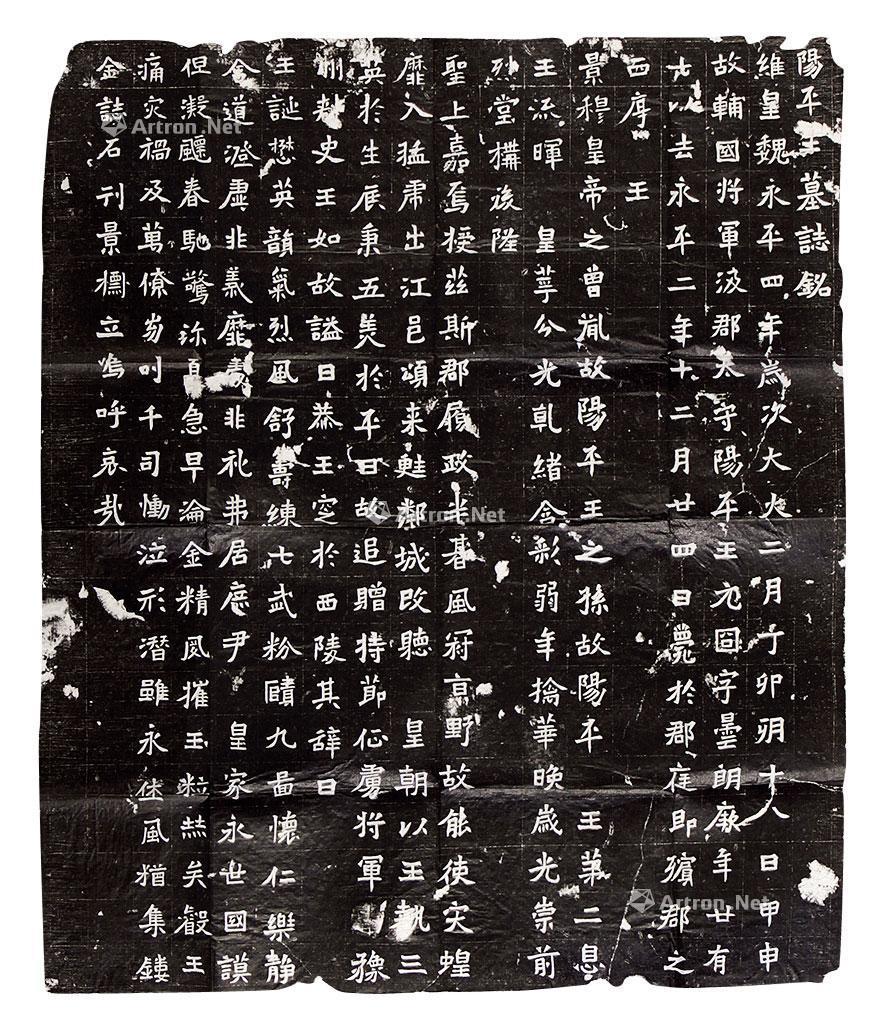 陽平王墓誌銘
維皇魏永平四年歲次大火二月丁卯朔十八日甲申
故輔國將軍汲郡太守陽平王元囧字曇朗厥年廿有
七以去永平二年十二月廿四日薨於郡庭即殯郡之
西序 王
景穆皇帝之曾胤故陽平王之孫故陽平 王第二息
王流暉 皇萼分光乹緒含彩弱年擒華晚歲光崇前
列堂構後陞
聖上嘉焉授茲斯郡履政半朞風冠京野故能使灾蝗
靡入猛虎出江邑頌来甦鄰城改聽 皇朝以王執三
英於生辰秉五美於平日故追贈持節征虜將軍 豫
州刺史王如故謚曰恭王窆於西陵其辞曰
王誕懋英韻氣烈風舒壽練七武粉賾九畵懷仁樂静
含道澄虛非義靡 非礼弗居庶尹 皇家永世國謨
但凝飃春馳驚弥夏急早淪金精夙摧玉粒 矣叡王
痛灾禍及萬僚 千司慟泣形潛雖永佳風猶集鏤
金誌石刊景檦立嗚呼哀哉
Artron.Net
Artron.Net
Artron.Net